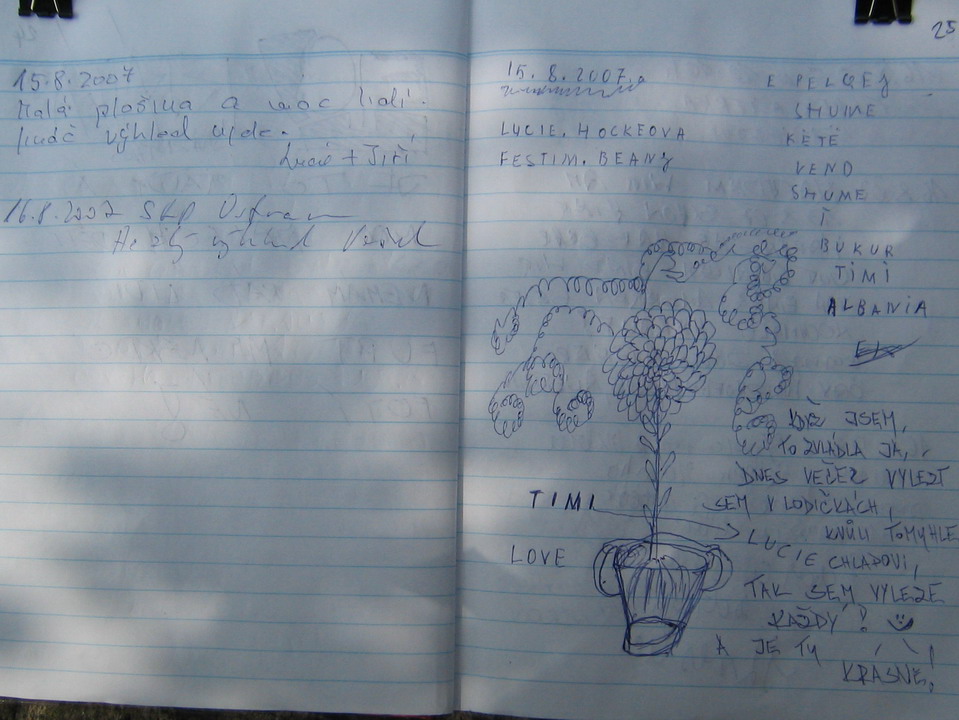 25
15.8.2007
Malá plošina a moc lidí.
výhled ujde.
Lucie + Jiří
16.8.2007 SKP
výhled
15.8.2007
LUCIE. HOCKEOVA
FESTIM. BEANY
E PELQEJ
SHUME
KËTË
VEND
SHUME
I
BUKUR
TIMI
ALBANIA
TIMI
LOVE
KDYŽ JSEM,
TO ZVLÁDLA JÁ,
DNES VEČER VYLEZT
SEM V LODIČKÁCH,
KVŮLI TOMUHLE
LUCIE CHLADOVI,
TAK SEM VYLEZE
KAŽDÝ!
A JE TU
KRÁSNĚ!